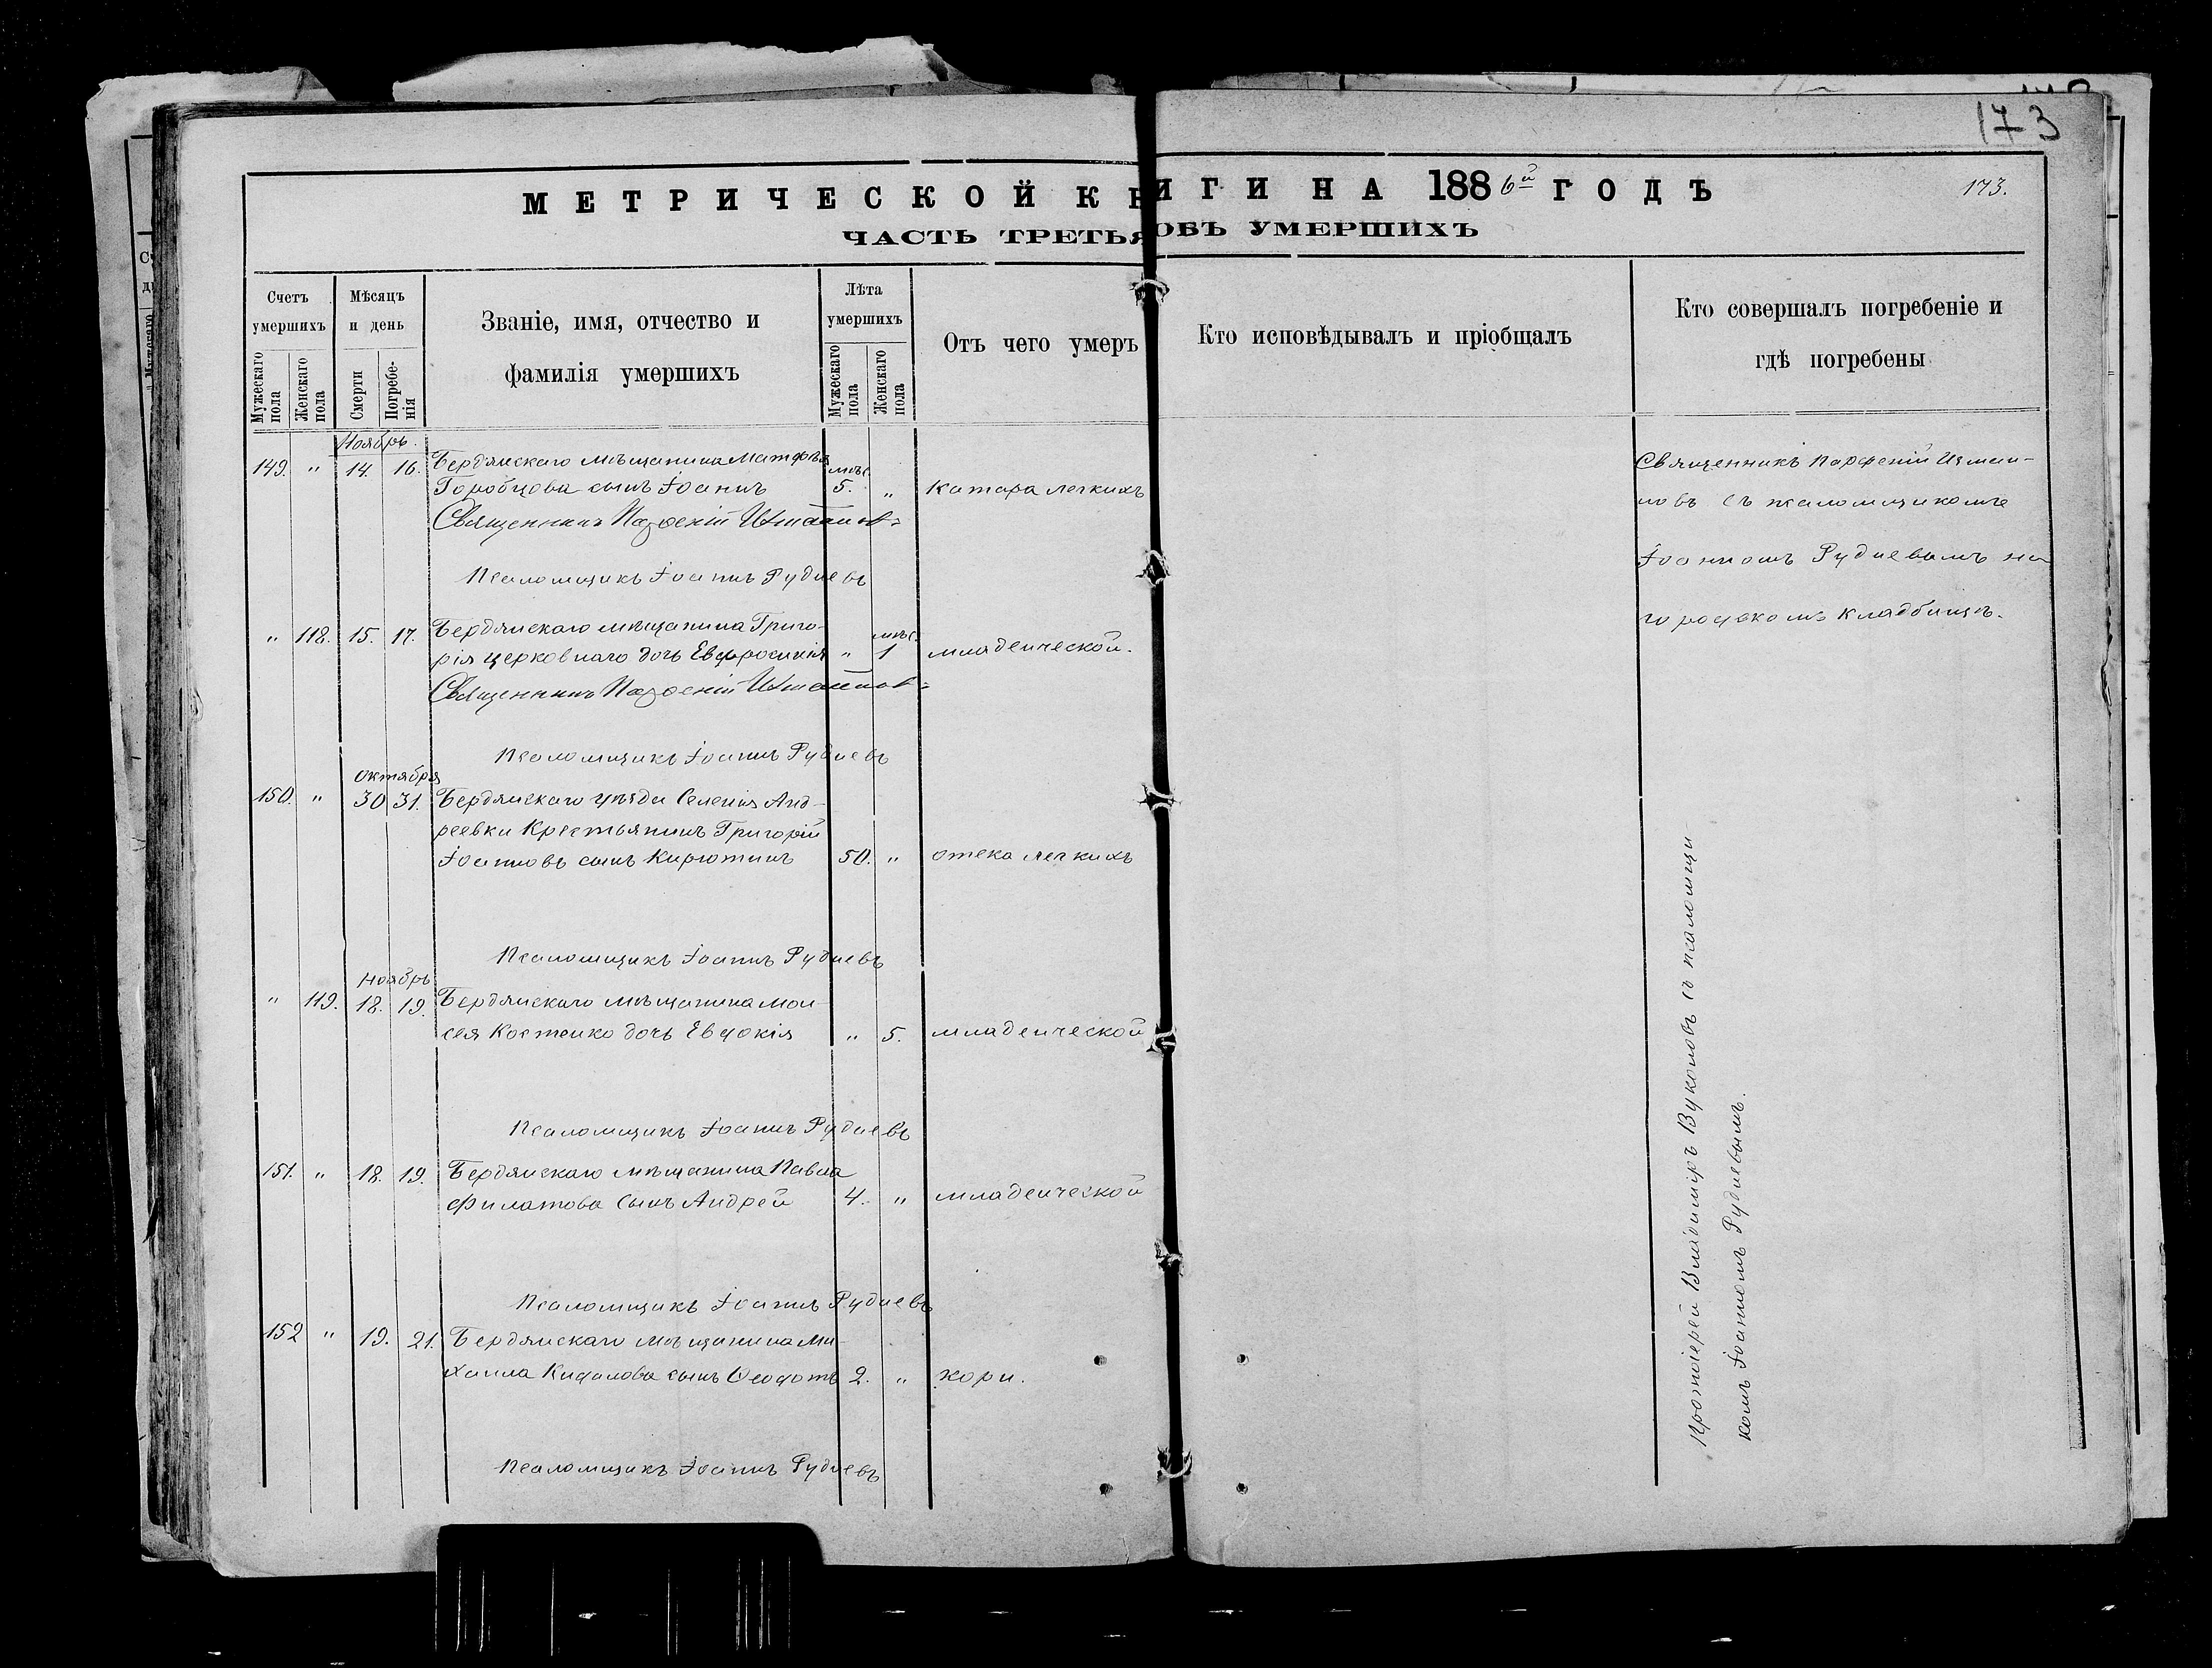 173
МЕТРИЧЕСКОЙ КНИГИ НА 1886й ГОДЪ
173.
ЧАСТЬ ТРЕТЬЯ ОБЪ УМЕРШИХЪ
Счетъ умершихъ
Мужескаго пола
Женскаго пола
Мѣсяцъ и день
Смерти
Погребенія
Званіе, имя, отчество и
фамилія умершихъ
Лѣта умершихъ
Мужескаго пола
Женскаго пола
Отъ чего умеръ
Кто исповѣдывалъ и пріобщалъ
Кто совершалъ погребеніе и
гдѣ погребены
Ноябрь.
149. " 14. 16. Бердянскаго мѣщанина Матфѣя мѣс.
Горобцова сынъ Іоаннъ 5. " катара легкихъ
Священникъ Парѳеній
Псаломщикъ Іоаннъ Рудневъ
" 118. 15. 17. Бердянскаго мѣщанина Григо- мѣс.
рія Церковнаго дочь Евфросинія " 1 младенческой.
Священникъ Парѳеній
Псаломщикъ Іоаннъ Рудневъ
Октября
150. " 30 31. Бердянскаго уѣзда Селенія Анд-
реевки Крестьянинъ Григорій
Іоанновъ сынъ Кирютинъ 50. " отека легкихъ
Псаломщикъ Іоаннъ Рудневъ
Ноябрь
" 119. 18. 19. Бердянскаго мѣщанина Мои-
сея Костенко дочь Евдокія " 5. младенческой
Псаломщикъ Іоаннъ Рудневъ
151. " 18. 19. Бердянскаго мѣщанина Павла
Филатова сынъ Андрей 4. " младенческой
Псаломщикъ Іоаннъ Рудневъ
152 " 19. 21. Бердянскаго мѣщанина Ми-
хаила Кидалова сынъ Ѳеодотъ 2. " кори.
Псаломщикъ Іоаннъ Рудневъ
Священникъ Парѳеній Измаи-
ловъ съ псаломщикомъ
Іоанномъ Рудневымъ на
городскомъ кладбищѣ.
Протоіерей Владиміръ Вуколовъ съ псаломщи
комъ Іоанномъ Рудневымъ.